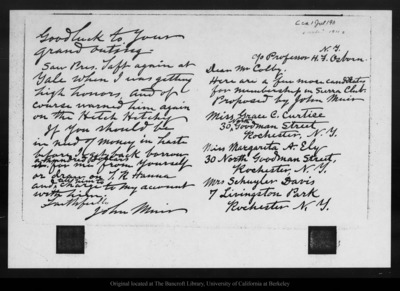 N.Y.
c/o Professor H.F. Osborn
Dear Mr Colby,
Here are a few more candidates
for membership in Sierra Club
Proposed by John Muir
Miss Grace C. Curtice
30 Goodman Street
Rochester, N.Y.
Miss Margarita A. Ely
30 North Goodman Street,
Rochester, N.Y.
Mrs Schuyler Davis
7 Livingston Park
Rochester N.Y.
Good luck to your
grand outing
Saw Pres. Taft again at
Yale when I was getting
high honors, and of
course warned him again
on the Hetch Hetchy
If you should be
in need of money in haste
before I get back borrow
for me from yourself
or draw on T.R. Hanna
and charge to my account
with him
Faithfully
John Muir
Original located at The Bancroft Library, University of California at Berkeley